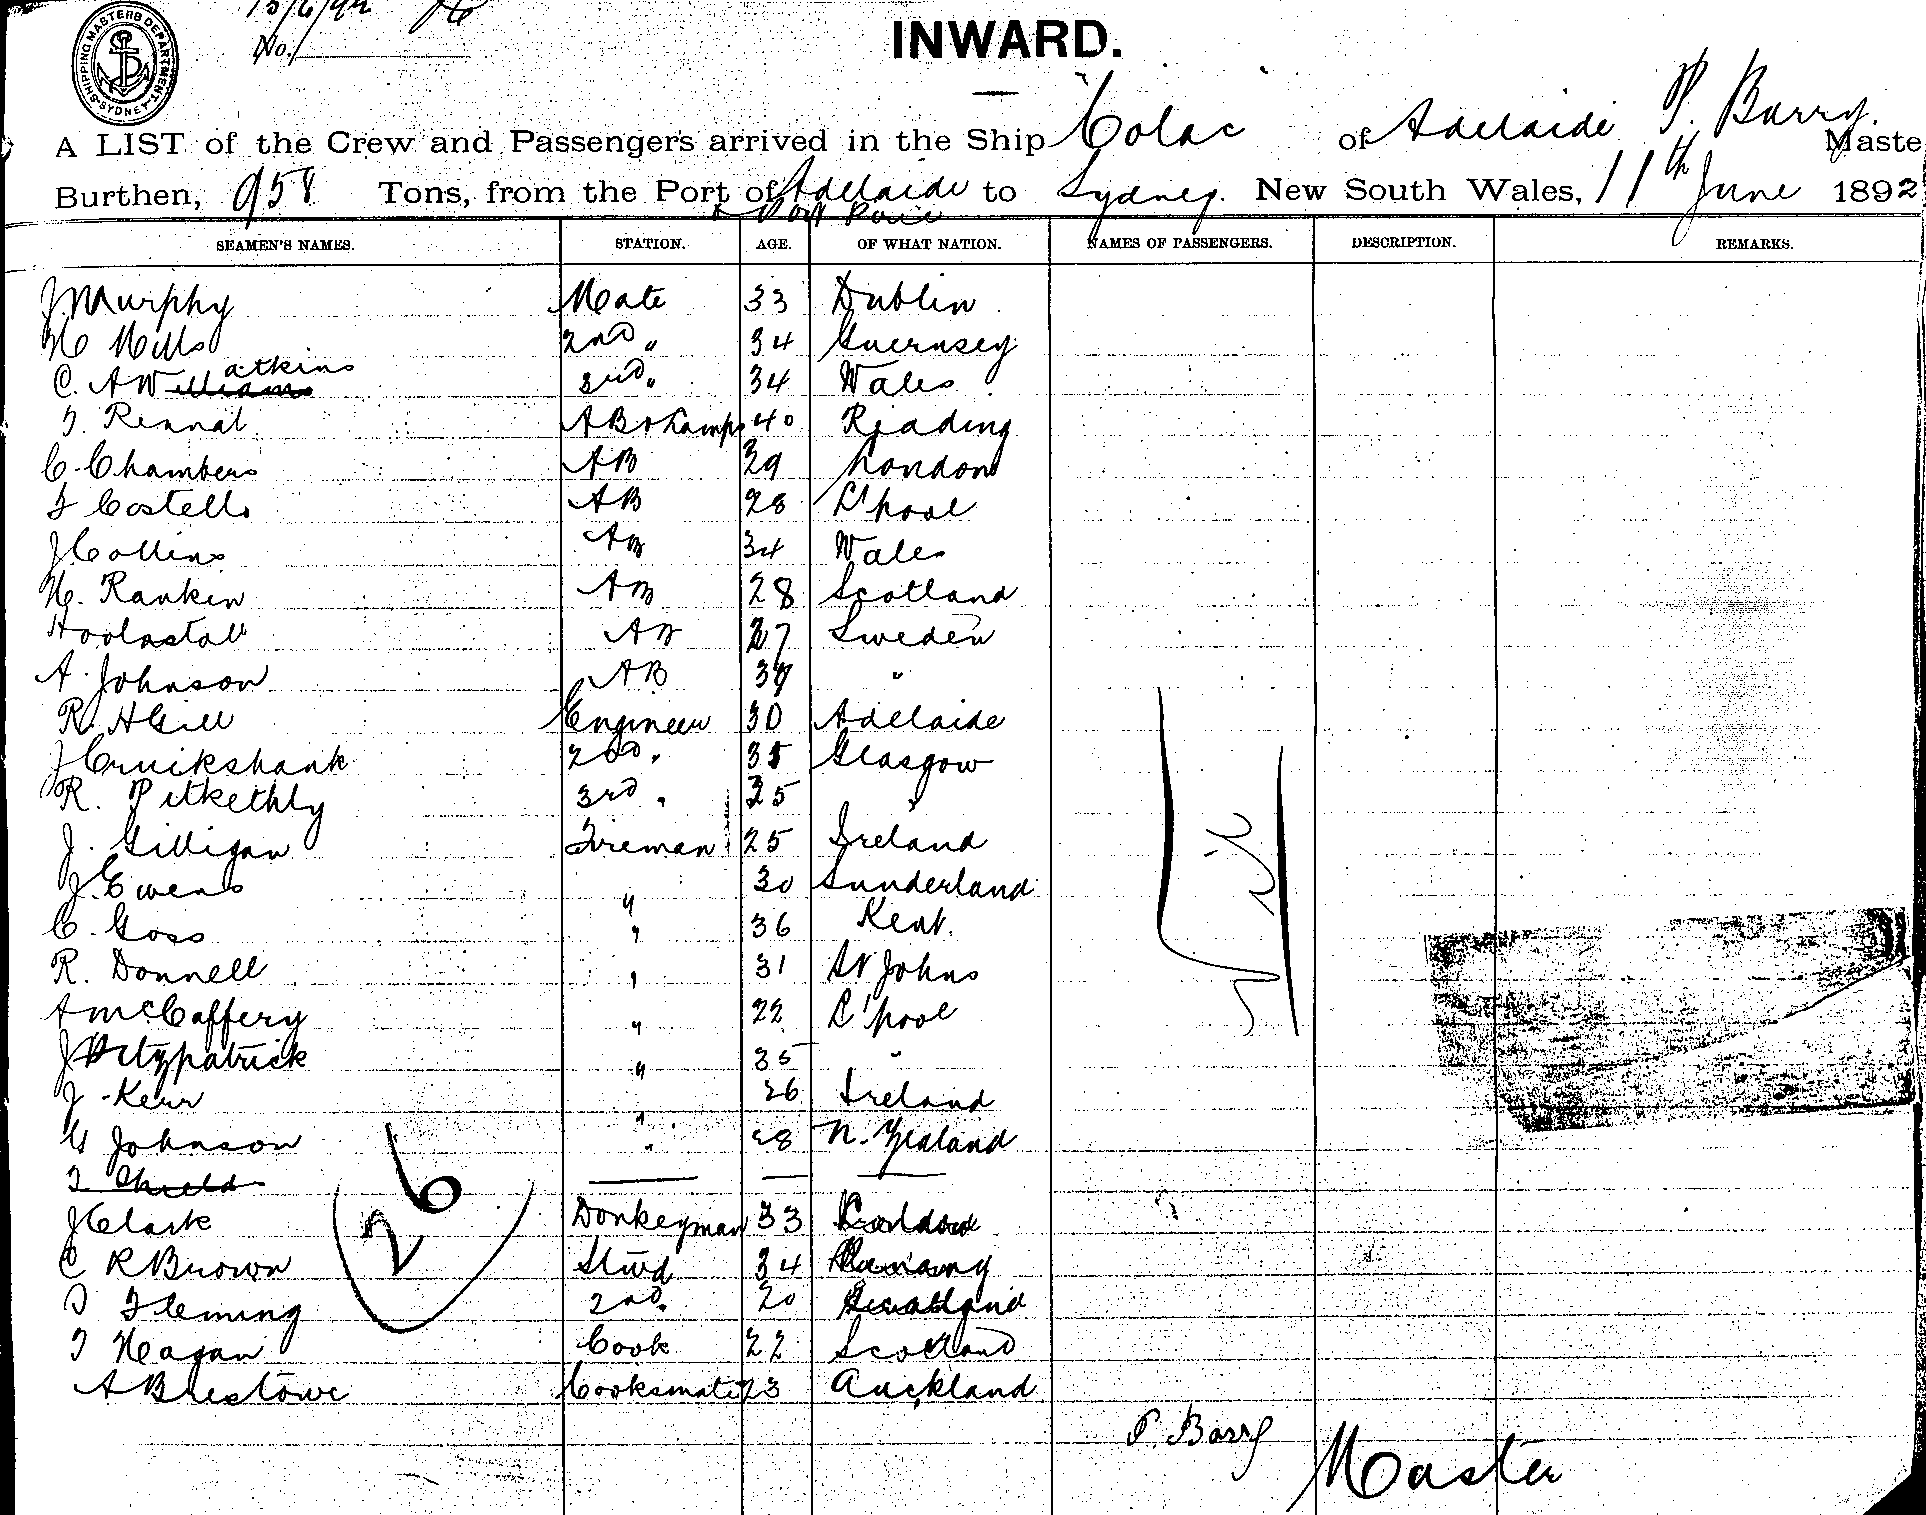 15/6/92
SHIPPING MASTERS DEPARTMENT SYDNEY
No.
INWARD.
A LIST of the Crew and Passengers arrived in the Ship Colac of Adelaide P. Barry. Maste
Burthen, 958 Tons, from the Port of Adelaide to Sydney. New South Wales, 11th June 1892
& Port Pirie
SEAMEN'S NAMES. STATION. AGE. OF WHAT NATION. NAMES OF PASSENGERS. DESCRIPTION. REMARKS.
J Murphy Mate 33 Dublin
H Mills 2nd " 34 Guernsey
atkins
C. A Williams 3rd " 34 Wales
T. Rennat AB & Lamps 40 Reading
C. Chambers AB 29 London
T Costello AB 28 L'pool
J Collins AB 34 Wales
H. Rankin AB 28 Scotland
AB 27 Sweden
A. Johnson AB 39 "
R. H Gill Engineer 30 Adelaide
J Cruikshank 2nd " 35 Glasgow
R. Pitkethly 3rd " 25 "
J. Gilligan Fireman 25 Ireland
J. Ewens " 30 Sunderland
C. Goss " 36 Kent.
R. Donnell " 31 St Johns
A McCaffery " 22 L'pool
J Fitzpatrick " 35 "
J Kerr " 26 Ireland
G Johnson " 28 N. Zealand
T Shields
J Clark Donkeyman 33 London
C R Brown Stwd 34
D Fleming 2nd " 20
T Hagan Cook 22 Scotland
A Brestowe Cooksmate 23 Auckland
26
Nil
P. Barry
Master